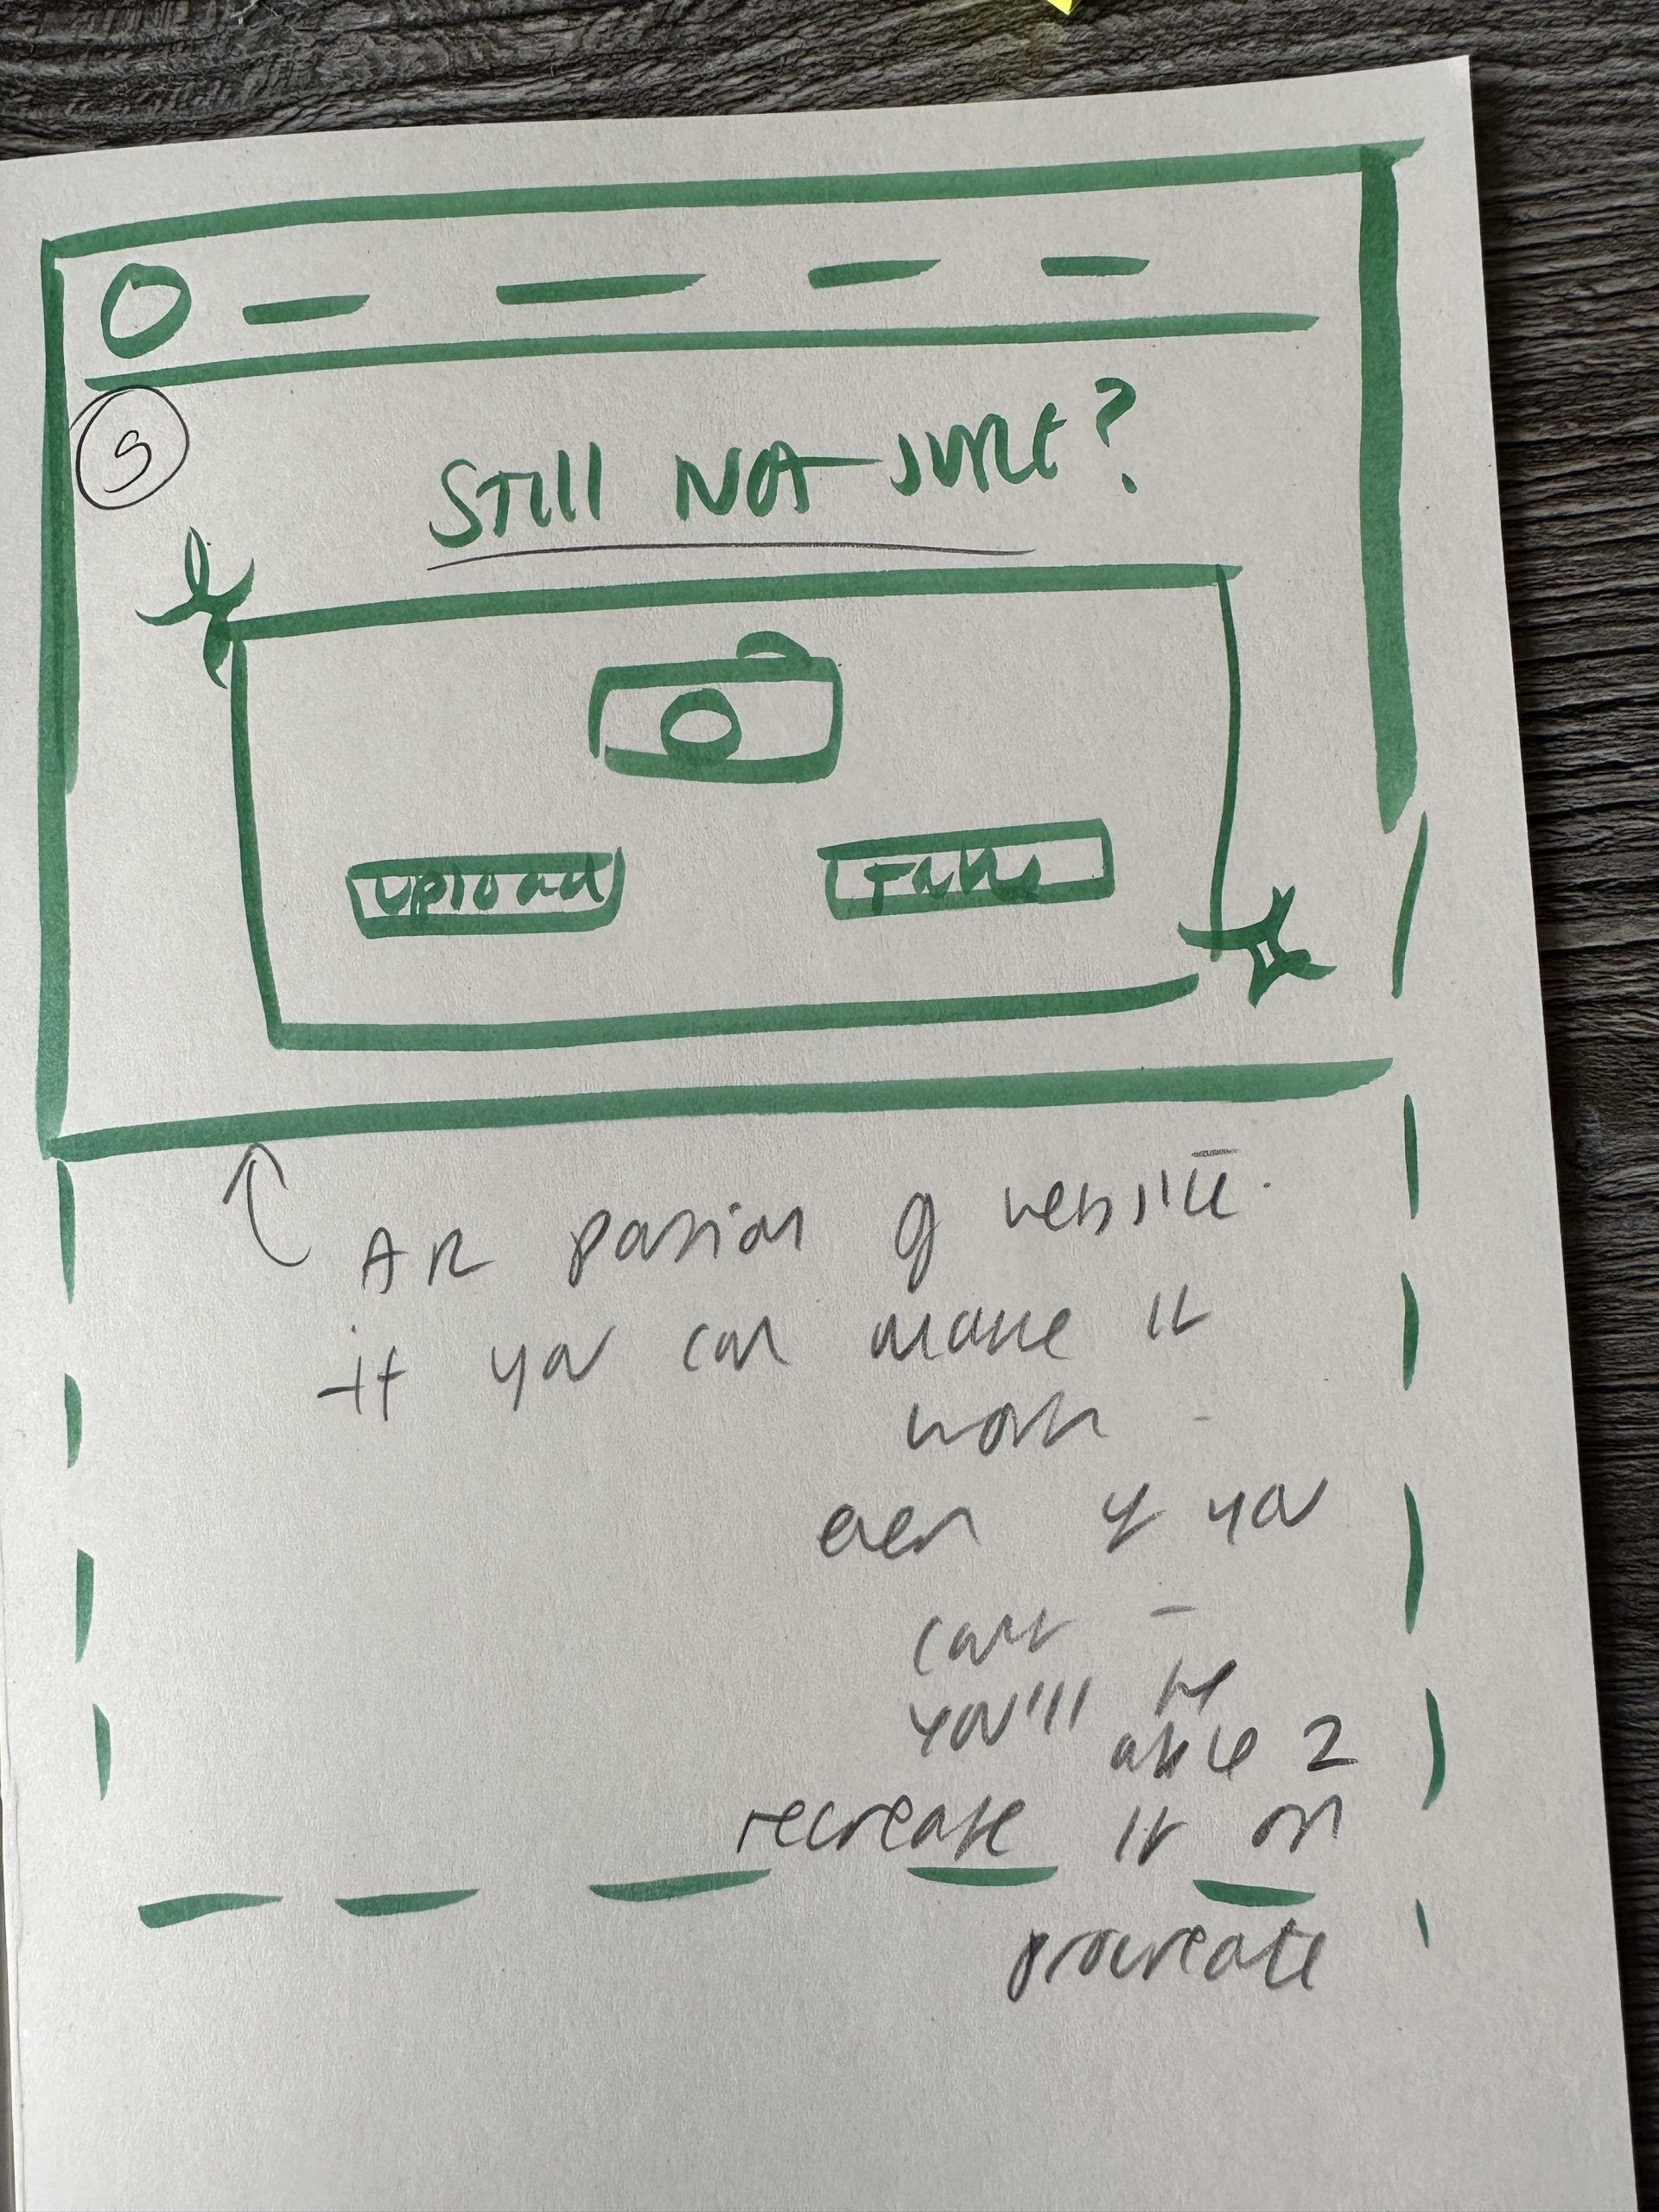 S
STill NOt SURE?
Upload
Take
AR portion of website.
if you can make it
work -
even if you
cant -
you'll be
able 2
recreate it on
procreate